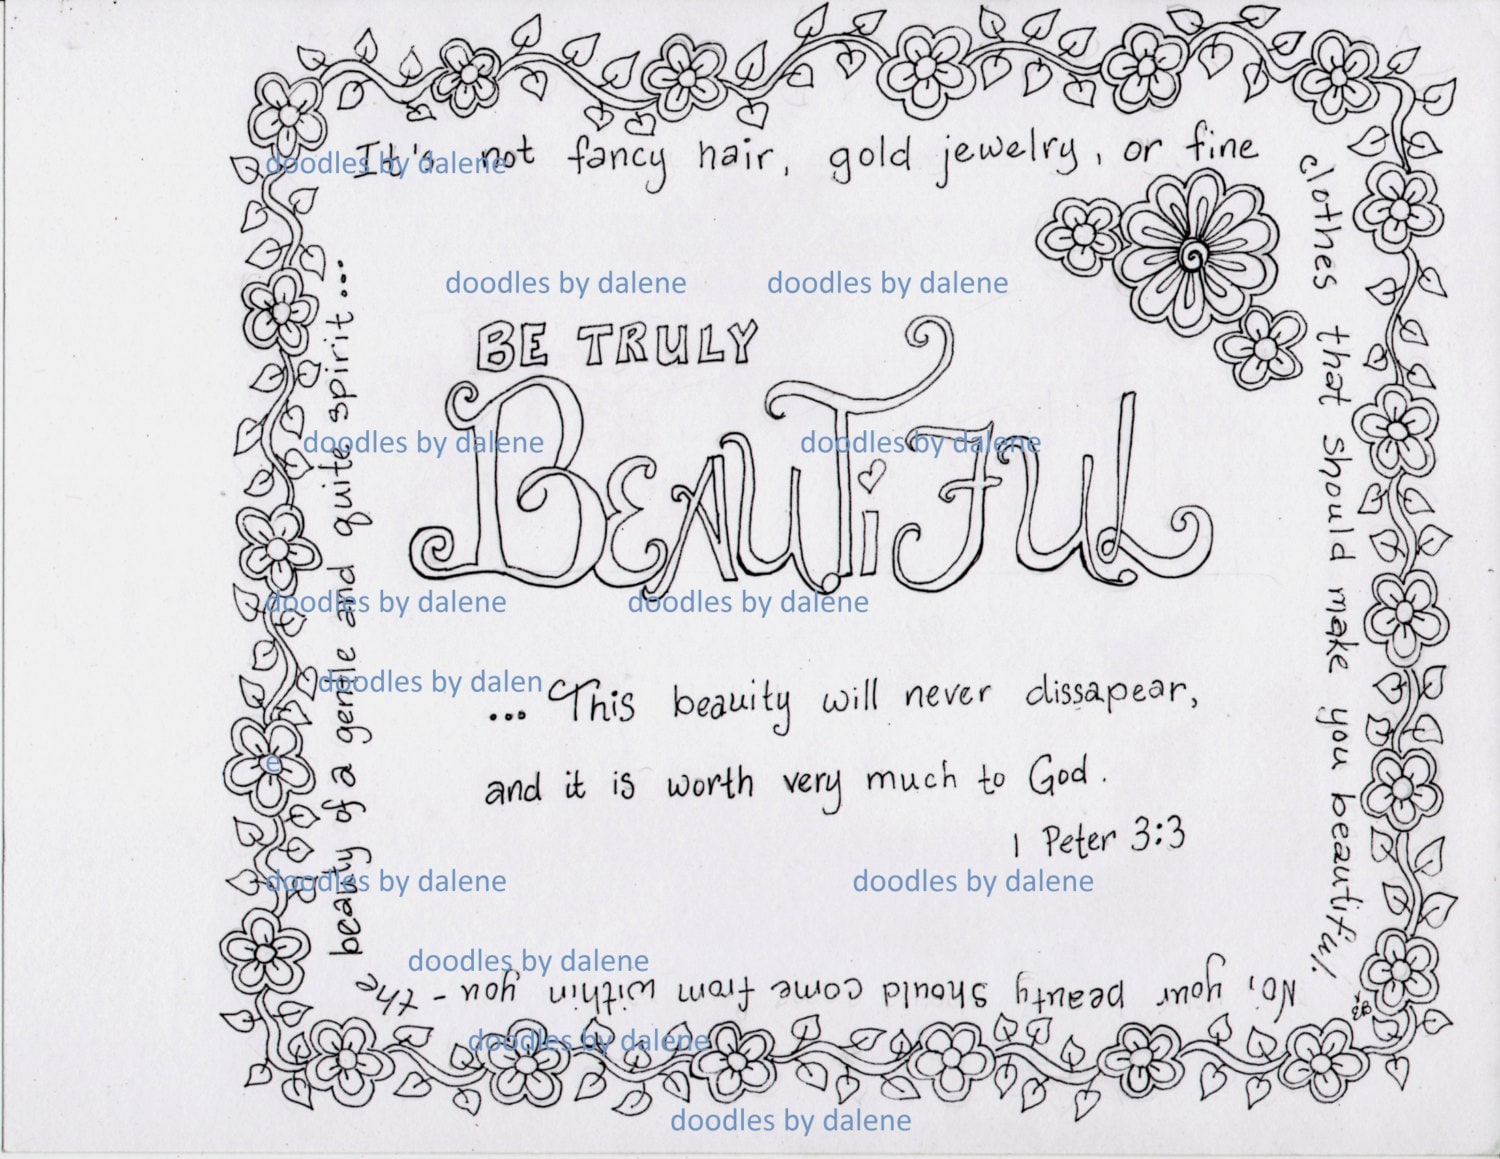 It's not fancy hair, gold jewelry, or fine
clothes that should make you beautiful.
No, your beauty should come from within you - the
beauty of a gentle and quite spirit...
BE TRULY
BEAUTiFUL
... This beauity will never dissapear,
and it is worth very much to God.
1 Peter 3:3
doodles by dalene
doodles by dalene
doodles by dalene
doodles by dalene
doodles by dalene
doodles by dalene
doodles by dalene
doodles by dalen
e
doodles by dalene
doodles by dalene
doodles by dalene
doodles by dalene
doodles by dalene